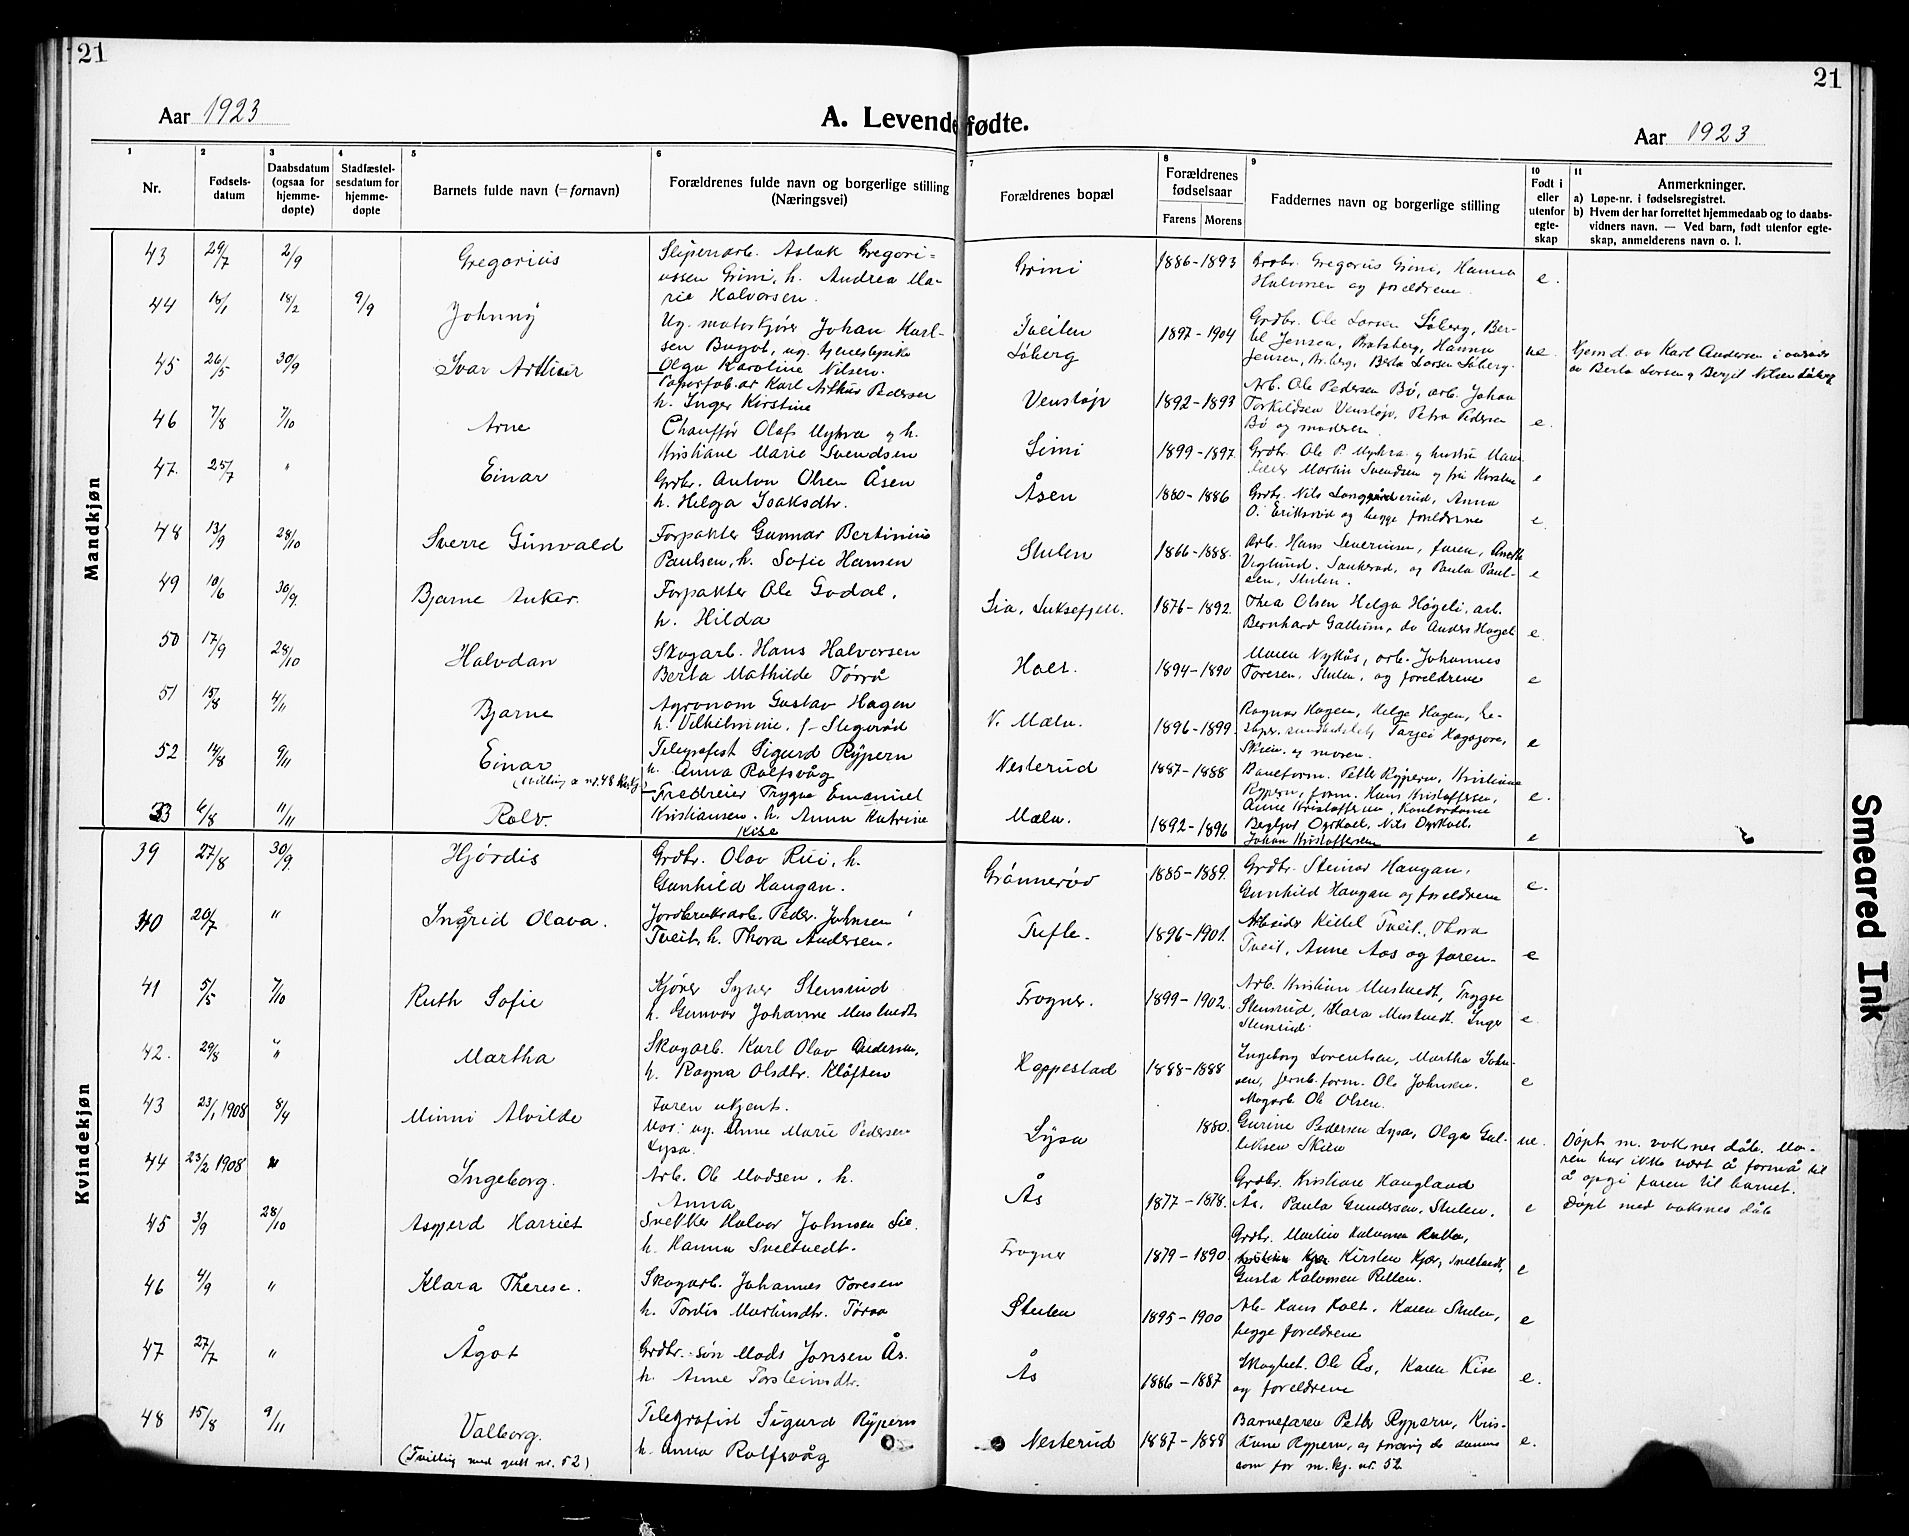 21
21
Aar 1923
A. Levendefødte.
Aar 1923
1 Nr.
2 Fødselsdatum
3 Daabsdatum (ogsaa for hjemmedøpte)
4 Stadfæstelsesdatum for hjemmedøpte
5 Barnets fulde navn (= fornavn)
6 Forældrenes fulde navn og borgerlige stilling (Næringsvei)
7 Forældrenes bopæl
8 Forældrenes fødselsaar
Farens Morens
9 Faddernes navn og borgerlige stilling
10 Født i eller utenfor egteskap
11 Anmerkninger.
a) Løpe-nr. i fødselsregistret.
b) Hvem der har forrettet hjemmedaab og to daabsvidners navn. — Ved barn, født utenfor egteskap, anmelderens navn o. l.
Mandkjøn
43 29/7 2/9 Gregorius
Slipenarb. Aslak Gregoriussen Grini, h. Andrea Marie Halvorsen.
Grini 1886-1893
Grdbr. Gregorius Grini, Hanna Halvorsen og foreldrene e.
44 18/1 18/2 9/9 Johnny
Ug. motorkjører Johan Karlsen Bugot, ug. tjenestepike Olga Karoline Nilsen.
Tveiten Søberg 1897-1904
Grdbr. Ole Larsen Søberg, Bertil Jensen, Bratsberg, Hanna Jensen, Berta Larsen Søberg. ue.
Hjemd. av Karl Andersen i
av Berta Larsen og Bergit Nilsen Søberg
45 26/5 30/9 Ivar Arthur
Papirfab.ar Karl Arthur Pedersen h. Inger Kirstine
Venstøp 1892-1893
Arb. Ole Pedersen Bø, arb. Johan Torkildsen Venstøp, Petra Pedersen Bø og moderen e.
46 7/8 7/10 Arne
Chauffør Olaf Myhra og h. Kristiane Marie Svendsen
Limi 1899-1897
Grdbr. Ole P Myhra og hustru Martin Svendsen og fru Kirstine e
47. 25/7 " Einar
Grdbr. Anton Olsen Åsen h. Helga Isaksdtr.
Åsen 1880-1886
Grdbr. Nils Anna O. Eriksrød og begge foreldrene e.
48 13/9 28/10 Sverre Gunvald
Forpakter Gunnar Bertinius Paulsen, h. Sofie Hansen
Stulen 1866-1888.
Arb. Hans Severinsen, faren, Anette Viglund. Sankerød, og Paula Paulsen, Stulen. e
49 10/6 30/9. Bjarne Anker.
Forpakter Ole Godal, h. Hilda
Lia, Luksefjell. 1876-1892.
Thea Olsen Helga Høgeli, arb. Bernhard Gallum, do Anders Høgeli e.
50 17/9 28/10 Halvdan
Skogarb. Hans Halvorsen Berta Mathilde Tørrå
Holt. 1894-1890
Maren Nykås, arb. Johannes Toresen, Stulen, og foreldrene e
51 15/8 4/11 Bjarne
Agronom Gustav Hagen h. Vilhelmine, f. Stigerød
V. Mæla. 1896-1899
Ragnar Hagen, Helge Hagen, Tarjei Hagajore, Skien. og moren. e
52 14/8 9/11 Einar
(Tvilling a nr. 48 )
Telegrafist Sigurd Rypern h. Anna Rolfsvåg
Nesterud 1887-1888
Baneform. Petter Rypern, Kristiane Rypern, form. Hans Kristoffersen, Anne Kristoffersen, Kontordame e.
53 6/8 11/11 Rolv.
Fredreier Trygve Emanuel Kristiansen. h. Anna Katrine Kise
Mæla. 1892-1896
Bergljot Dyrkoll. Nils Dyrkoll. Johan Kristoffersen e
Kvindekjøn
39 27/8 30/9. Hjørdis
Grdbr. Olav Rui, h. Gunhild Haugan.
Grønnerød 1885-1889.
Grdbr. Steinar Haugan, Gunhild Haugan og foreldrene e.
40 20/7 " Ingrid Olava.
Jordbruksarb. Peder Johnsen Tveit, h. Thora Andersen.
Tufte. 1896-1901.
Arbeider Kittel Tveit, Thora Tveit, Anne Aas og faren. e
41 5/5 7/10 Ruth Sofie
Kjører Syver Stensrud h. Gunvor Johanne Mustvedt
Frogner. 1899-1902.
Arb. Kristian Mustvedt, Trygve Stensrud, Klara Mustvedt. Inger Stensrud e.
42. 29/8 " Martha
Skogarb. Karl Olav Andersen, h. Ragna Olsdtr. Kløften
Hoppestad 1888-1888
Ingeborg Lorentsen, Martha Johnsen, jernb.form. Ole Johnsen. Ole Olsen. e
43 23/1 1908 8/4 Minni Alvilde
Faren ukjent. Mor: ug. Anne Marie Pedersen Lysa.
Lysa 1880.
Gurine Pedersen Lysa, Olga Gulliksen Skien ue.
Døpt m. voksnes dåb. Moren har ikke vært å formå til å opgi faren til barnet.
44 23/2 1908 " Ingeborg.
Arb. Ole Madsen. h. Anna
Ås 1877-1878.
Grdbr. Kristiane Haugland Ås, Paula Gundersen, Stulen. e
Døpt med voksnes dåb
45 3/9 28/10 Asgjerd Harriet
Snekker Halvor Johnsen Lie h. Hanna Sveltvedt.
Frogner 1879-1890
Grdbr. Martin Halvorsen Kirsten Kjær, Gusta Halvorsen e
46 4/9 " Klara Therese.
Skogarb. Johannes Toresen h. Tordis Martinsdtr. Tøraa
Stulen 1895-1900
Arb. Hans Holt. Karen Stulen, begge foreldrene e
47 27/7 " Ågot
Grdbr.-søn Mads Jonsen Ås. h. Anne Torsteinsdtr.
Ås 1886-1887
Ole Ås, Karen Kise og foreldrene e.
48 15/8 9/11 Valborg.
(Tvilling med gutt nr. 52)
Telegrafist Sigurd Rypern h. Anna Rolfsvåg
Nesterud 1887-1888
Petter Rypern, Kristiane Rypern, og forøvrig de samme som for m.kj. nr. 52. e.
Smeared Ink